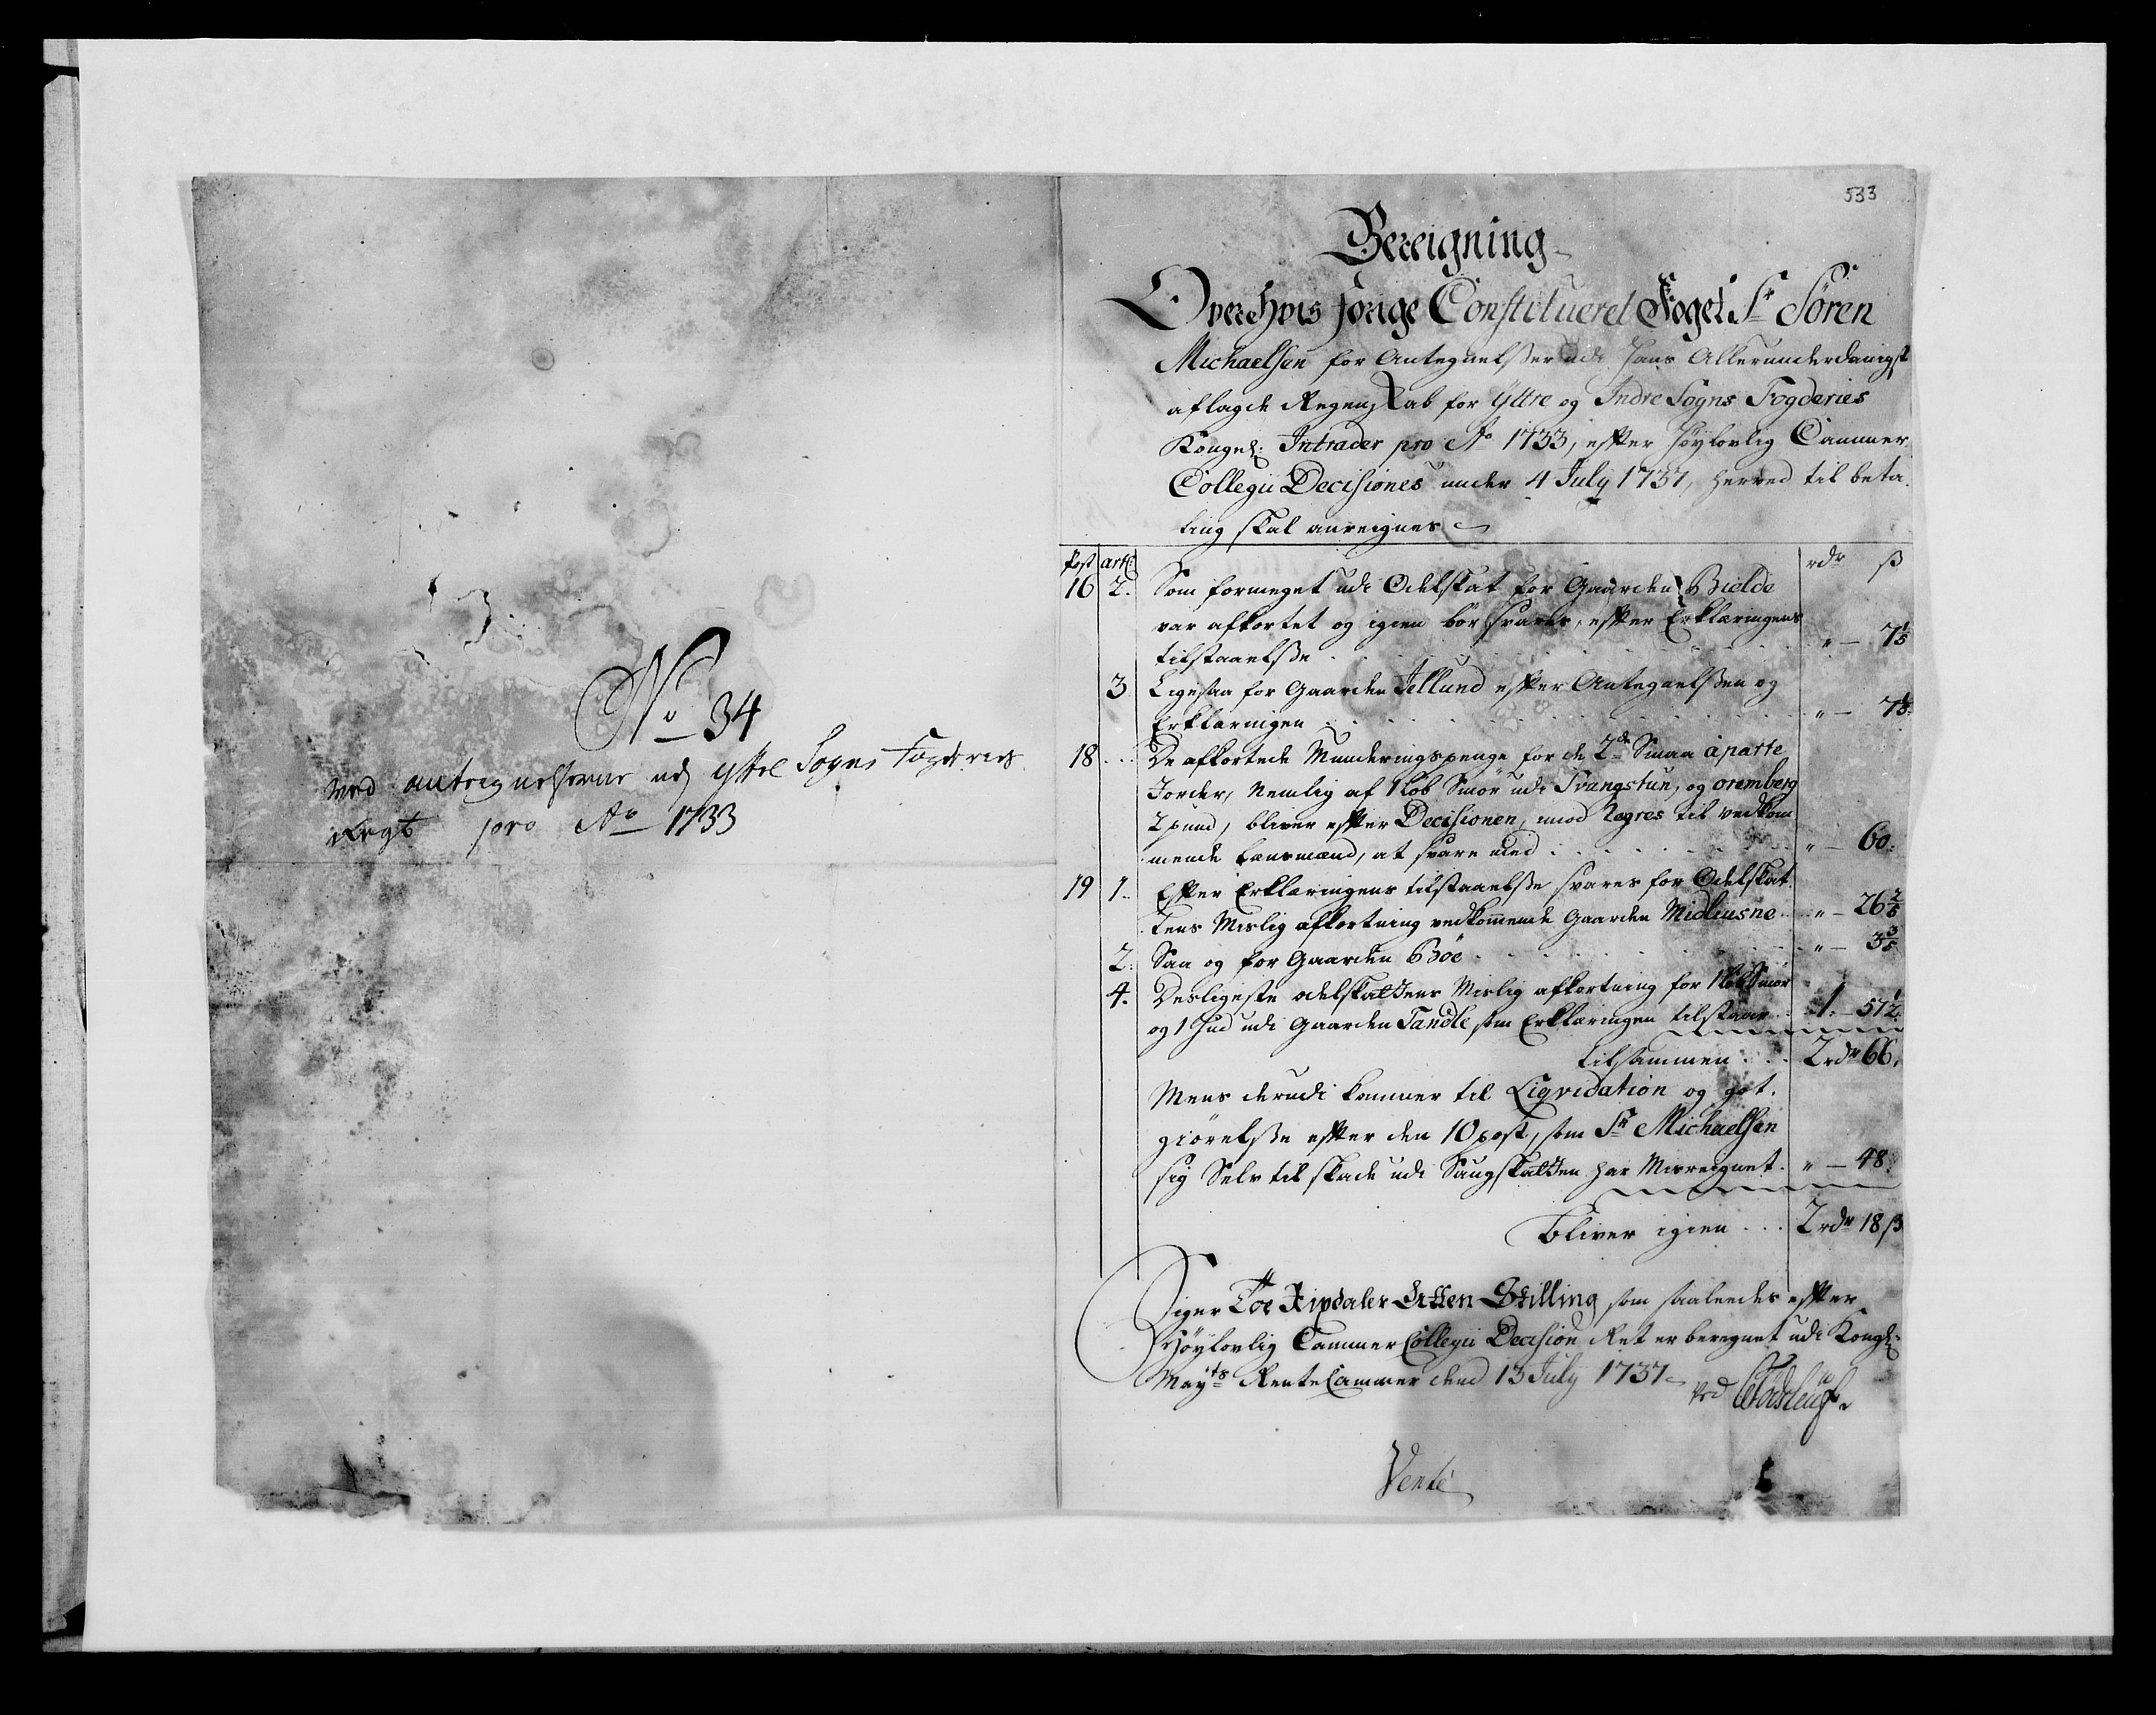 No 34
ved antegnelserne udj Yttre Sogns Fogderies
Regb pro Ao 1733
533
Bereigning
Over hvis forige Constitueret Foget Sr Sören
Michaelsen for Antegnelsser udi hans Allerunderdanigst
aflagde Regenskab for Yttre og Indre Sogns Fogderies
Kongel: Intrader pro Ao 1733, efter höylovlig Cammer
Collegii Decisiones under 4 July 1737, herved til beta
ling skal anreignes
Post artl: rdr ß
16 2. Som formeget udi Odelskat for Gaarden Bielde
var afkortet og igien bör svares, efter Erklæringens
tilstaaelsse . . . " — 7 1/5
3 Ligesaa for Gaarden Jellund efter Antegnelssen og
Erklæringen . . . " — 7 1/5
18 . . . De afkortede Munderingspenge for de 2de Smaa àparte
Jorder, Nemlig af 1 Löb Smör udi Tvangstun, og oremberg
2 pund, bliver efter Decisionen, mod Regres til vedkom
mende Lænsmænd, at svare med . . . " — 60.
19 1. Efter Erklæringens tilstaaelsse svares for Odelskat
tens Mislig afkortning vedkommende Gaarden Midliusne . . . " — 26 2/5
2. Saa og for Gaarden Böe . . . " — 3 3/5
4. Desligeste odelskattens Mislig afkortning for 1 Löb Smör
og 1 Hud udi Gaarden Tandle som Erklæringen tilstaar . 1. — 57 1/2
tilsammen . . . 2 rdr 66.
Mens derudi kommer til Liqvidation og got
giörelsse efter den 10 post, som Sr Michaelsen
sig Selv til skade udi Saugskatten har Misreignet . " — 48.
bliver igien . . . 2 rdr 18 ß
Siger Toe Rixdaler Atten Skilling som saaleedes efter
Höylovlig Cammer Collegii Decision Ret er beregnet udi Kongl:
Mayts RenteCammer dend 13 July 1737
ved
Vente